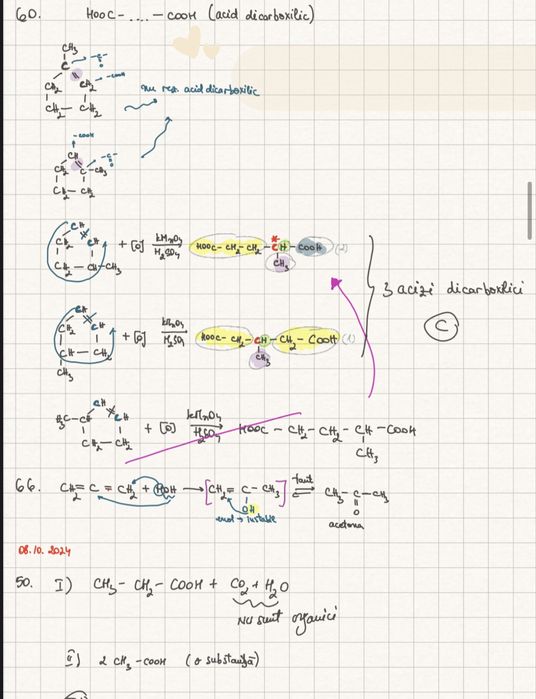 60. HOOC - .... - COOH (acid dicarboxilic)
CH3
C → -C-
O
CH2 CH2 → -COOH
CH2 - CH2
nu rez. acid dicarboxilic
-COOH
CH → -C-
O
CH2 C - CH3
CH2 - CH2
CH
CH2 CH
CH2 - CH - CH3
+ [O] KMnO4 H2SO4 HOOC - CH2 - CH2 - *CH - COOH (2)
CH3
CH
CH2 CH
CH - CH2
CH3
+ [O] KMnO4 H2SO4 HOOC - CH2 - CH - CH2 - COOH (1)
CH3
3 acizi dicarboxilici
C
CH
H3C - CH CH
CH2 - CH2
+ [O] KMnO4 H2SO4 HOOC - CH2 - CH2 - CH - COOH
CH3
66. CH2 = C = CH2 + HOH → [CH2 = C - CH3] taut ⇌ CH3 - C - CH3
OH O
enol → instabil acetona
08.10.2024
50. I) CH3 - CH2 - COOH + CO2 + H2O
NU sunt organici
ii) 2 CH3 - COOH (o substanță)